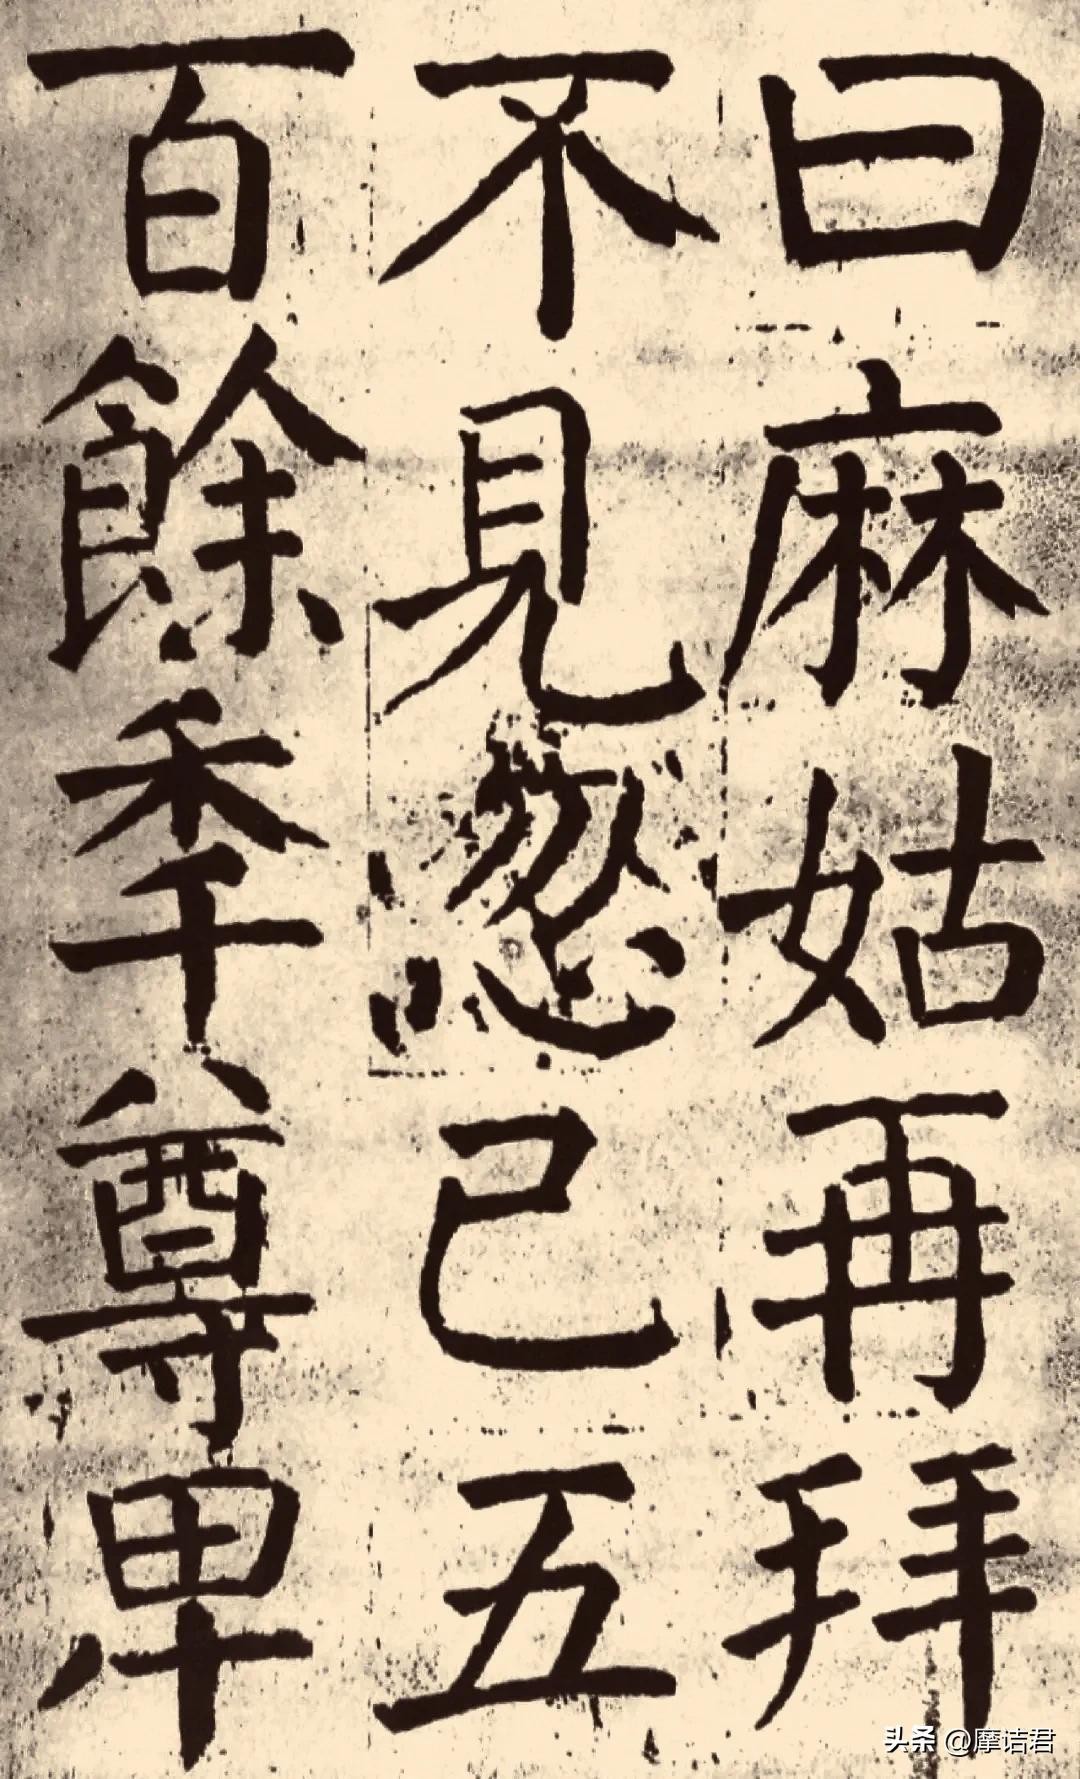 曰麻姑再拜
不見忽已五
百餘秊尊卑
头条 @摩诘君